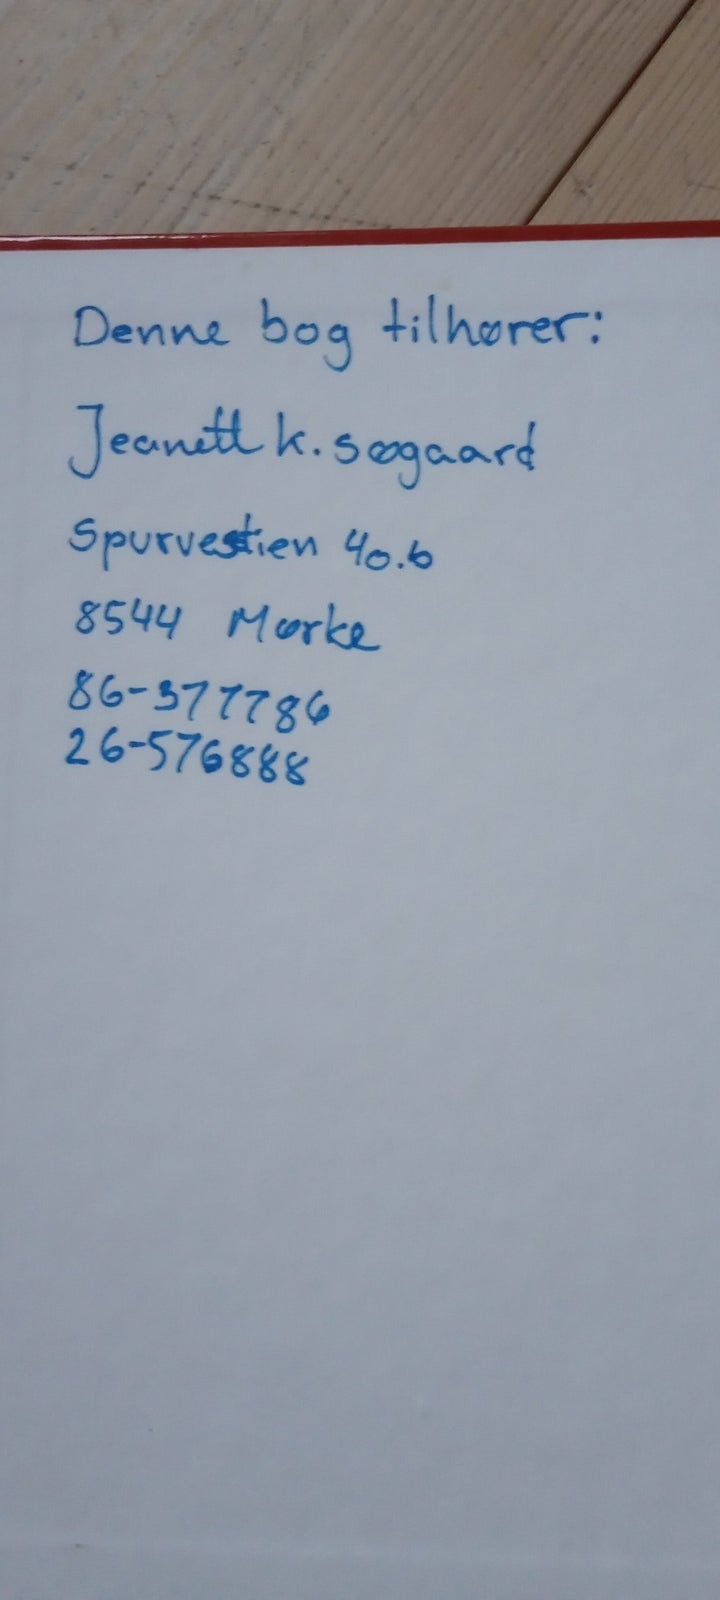 Denne bog tilhører:
Jeanett k. søgaard
Spurvestien 40.b
8544 Mørke
86-377786
26-576888